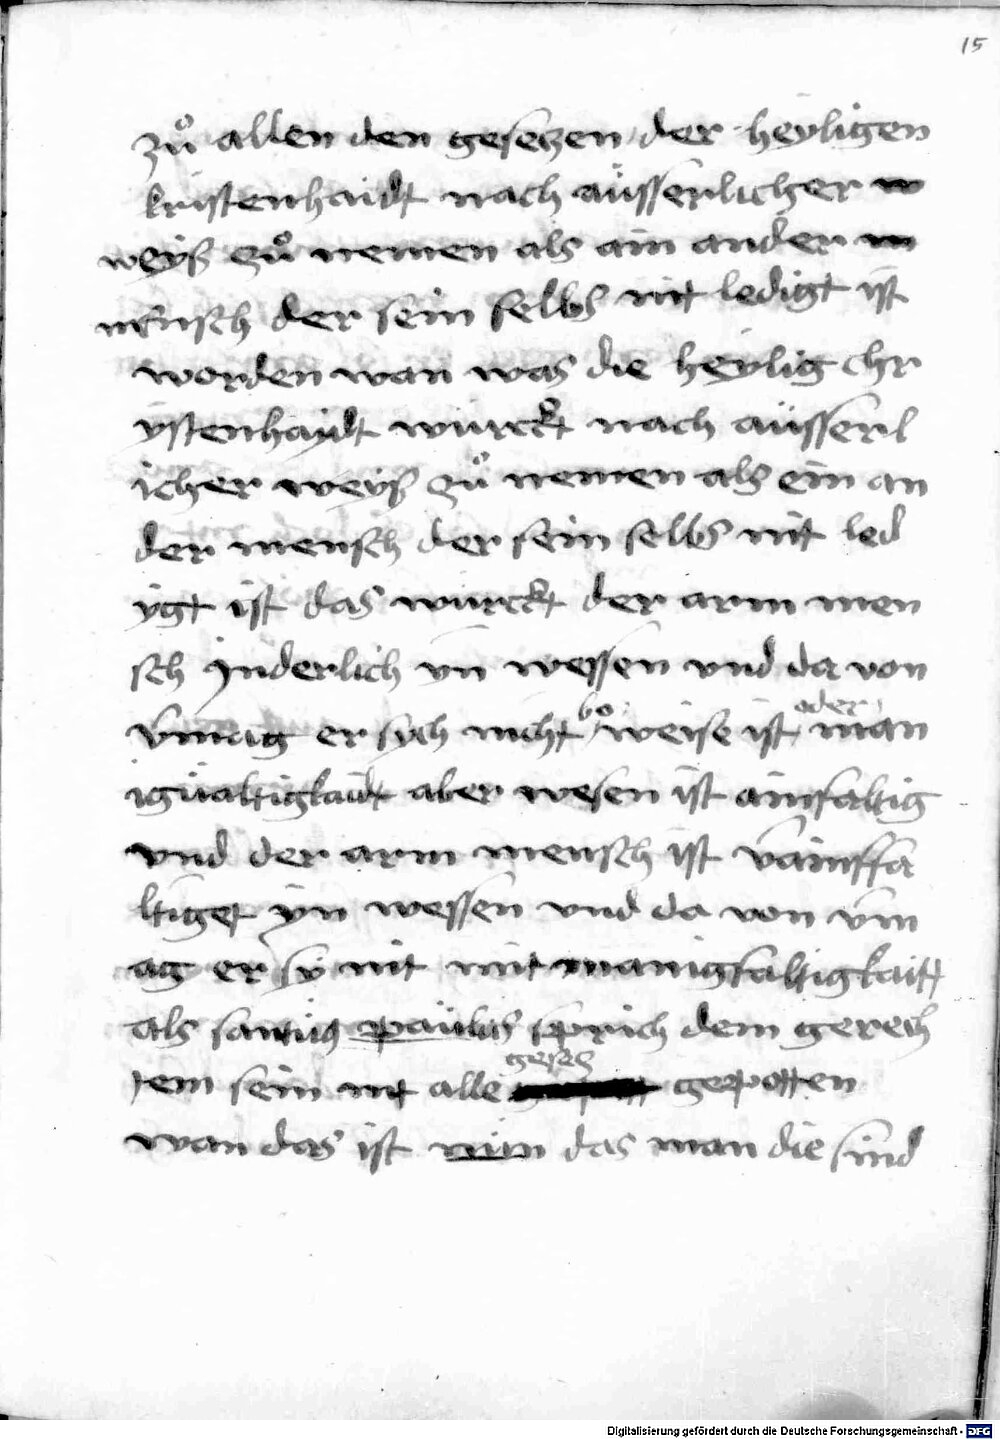 15
zuͦ allen den geseczen der heyligen
kristenhaidt nach aüsserlicher w
weyß zuͦ nemen als ain ander m
mensch der sein selbs nit ledigt ist
worden wan was die heylig chr
ystenhaydt würckt nach aüsserl
icher weyß zuͦ nemen als ein an
der mensch der sein selbs nit led
ygt ist das würckt der arm men
sch ynderlich yn̄ wessen vnd da von
v̄mag er sych nicht bo weise ist oder man
igüaltigkaidt aber wesen ist ainfaltig
vnd der arm mensch ist v̄ainffa
ltiget yn wessen vnd da von v̄m
ag er sy nit mit manigfaltigkaitt
als santüg paülus sprich dem gerech
tem sein nit alle gesecz gepotten
wan das ist das man die sind
Digitalisierung gefördert durch die Deutsche Forschungsgemeinschaft - DFG